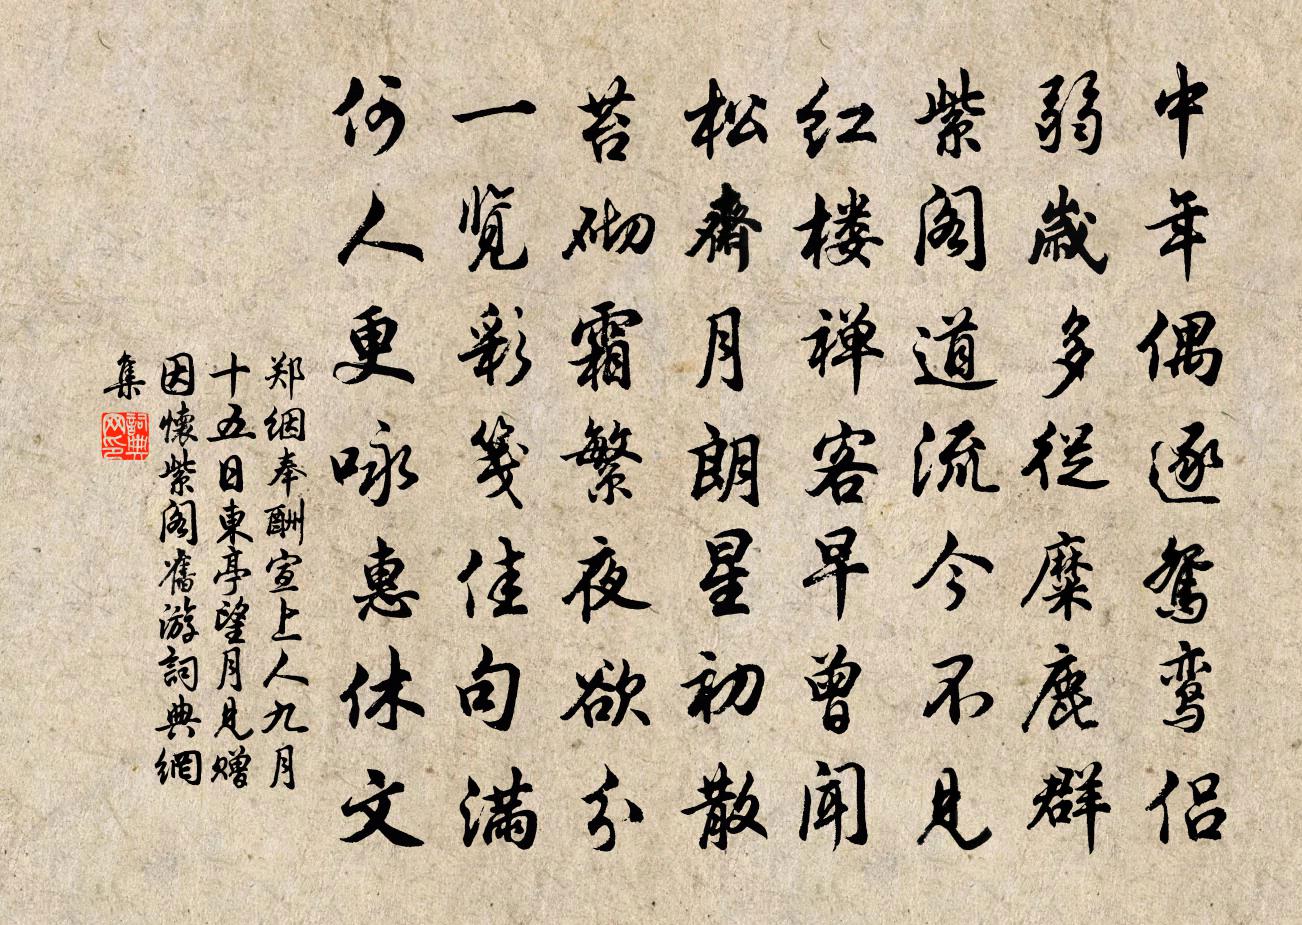 中年偶逐鸳鸾侣
弱岁多从麋鹿群
紫阁道流今不见
红楼禅客早曾闻
松斋月朗星初散
苔砌霜繁夜欲分
一览彩笺佳句满
何人更咏惠休文
郑絪奉酬宣上人九月
十五日東亭望月見赠
因懷紫阁舊游詞典網
集
詞典網印